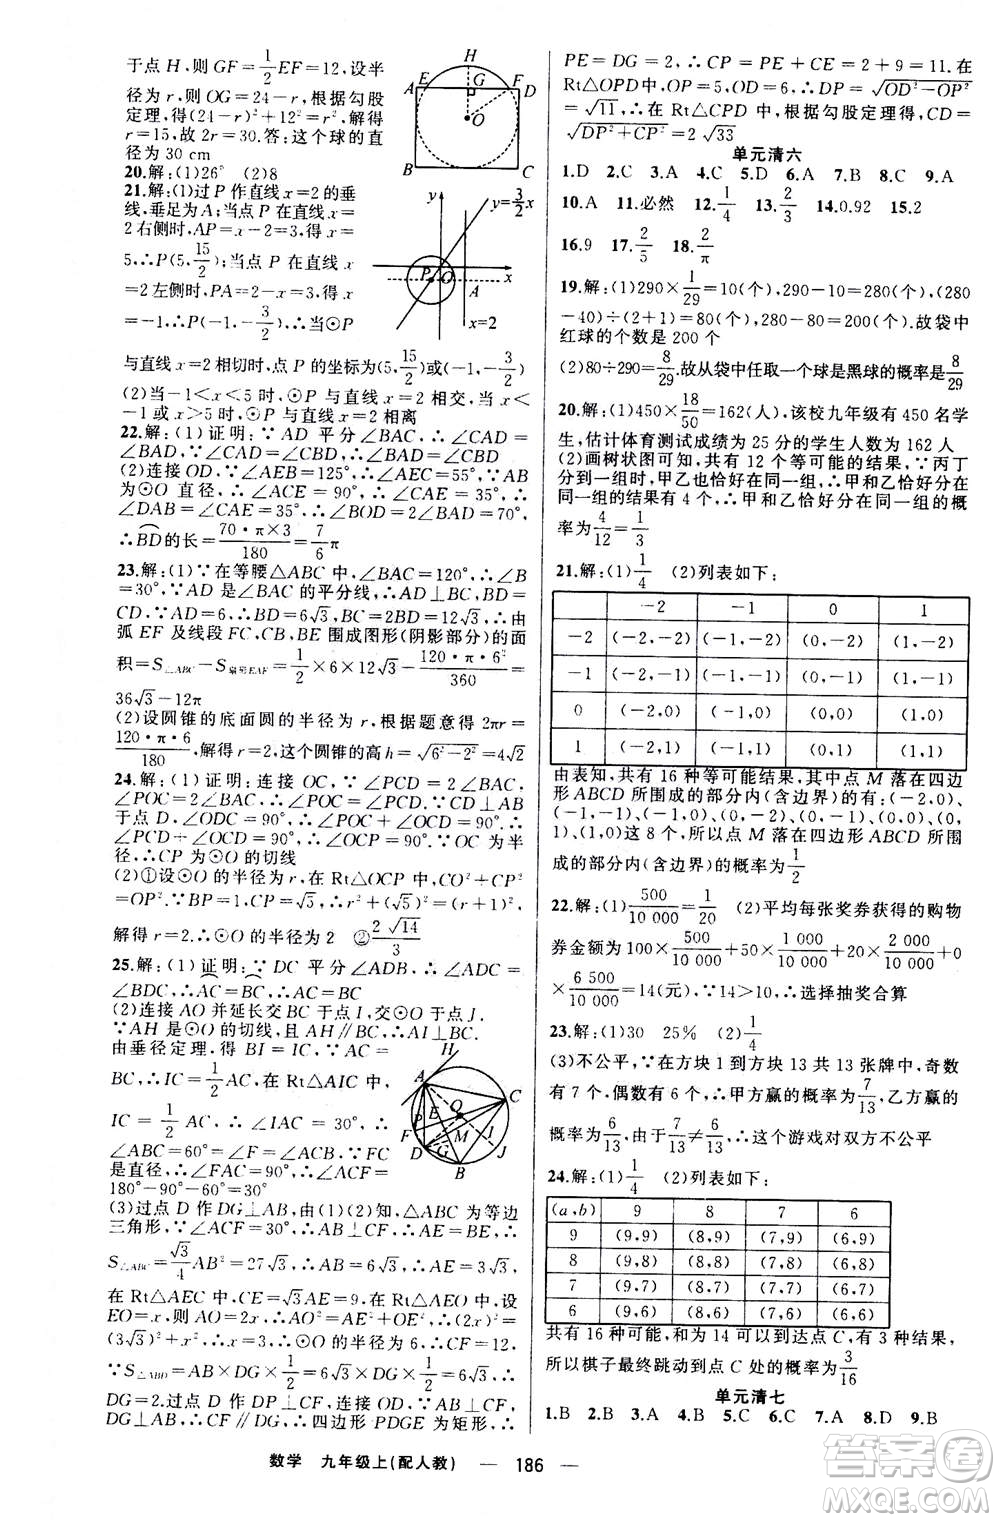 于点 H,则 GF=1/2EF=12,设半
径为 r,则 OG=24-r,根据勾股
定理,得(24-r)²+12²=r²,解得
r=15,故 2r=30.答:这个球的直
径为 30 cm
20.解:(1)26° (2)8
21.解:(1)过 P 作直线 x=2 的垂
线,垂足为 A;当点 P 在直线 x=
2 右侧时,AP=x-2=3,∴x=
5,∴P(5,15/2);当点 P 在直线 x
=2 左侧时,PA=2-x=3,∴x
=-1,∴P(-1,-3/2),∴当⊙P
与直线 x=2 相切时,点 P 的坐标为(5,15/2)或(-1,-3/2)
(2)当-1<x<5 时,⊙P 与直线 x=2 相交,当 x<
-1 或 x>5 时,⊙P 与直线 x=2 相离
22.解:(1)证明:∵AD 平分∠BAC,∴∠CAD=
∠BAD,∵∠CAD=∠CBD,∴∠BAD=∠CBD
(2)连接 OD,∵∠AEB=125°,∴∠AEC=55°,∵AB
为⊙O 直径,∴∠ACE=90°,∴∠CAE=35°,∴
∠DAB=∠CAE=35°,∴∠BOD=2∠BAD=70°,
∴BD的长=70·π×3/180=7/6π
23.解:(1)∵在等腰△ABC 中,∠BAC=120°,∴∠B
=30°,∵AD 是∠BAC 的平分线,∴AD⊥BC,BD=
CD,∵AD=6,∴BD=6√3,BC=2BD=12√3,∴由
弧 EF 及线段 FC,CB,BE 围成图形(阴影部分)的面
积=S△ABC-S扇形EAF=1/2×6×12√3-120·π·6²/360=
36√3-12π
(2)设圆锥的底面圆的半径为 r,根据题意得 2πr=
120·π·6/180,解得 r=2,这个圆锥的高 h=√6²-2²=4√2
24.解:(1)证明:连接 OC,∵∠PCD=2∠BAC,
∠POC=2∠BAC,∴∠POC=∠PCD,∵CD⊥AB
于点 D,∠ODC=90°,∴∠POC+∠OCD=90°,∴
∠PCD+∠OCD=90°,∴∠OCP=90°.∵OC 为半
径,∴CP 为⊙O 的切线
(2)①设⊙O 的半径为 r,在 Rt△OCP 中,CO²+CP²
=OP².∵BP=1,CP=√5,∴r²+(√5)²=(r+1)²,
解得 r=2.∴⊙O 的半径为 2 ②2√14/3
25.解:(1)证明:∵DC 平分∠ADB,∴∠ADC=
∠BDC,∴AC=BC,∴AC=BC
(2)连接 AO 并延长交 BC 于点 I,交⊙O 于点 J.
∵AH 是⊙O 的切线,且 AH∥BC,∴AI⊥BC.
由垂径定理,得 BI=IC,∵AC=
BC,∴IC=1/2AC,在 Rt△AIC 中,
IC=1/2AC,∴∠IAC=30°,∴
∠ABC=60°=∠F=∠ACB.∵FC
是直径,∴∠FAC=90°,∴∠ACF=
180°-90°-60°=30°
(3)过点 D 作DG⊥AB,由(1)(2)知,△ABC 为等边
三角形,∵∠ACF=30°,∴AB⊥CF,∴AE=BE,∴
S△ABC=√3/4AB²=27√3,∴AB=6√3,∴AE=3√3,
在 Rt△AEC 中,CE=√3AE=9,在 Rt△AEO 中,设
EO=x,则 AO=2x,∴AO²=AE²+OE²,∴(2x)²=
(3√3)²+x²,∴x=3,∴⊙O 的半径为 6,∴CF=12,
∵S△ABD=AB×DG×1/2=6√3×DG×1/2=6√3,∴
DG=2,过点 D 作 DP⊥CF,连接 OD,∵AB⊥CF,
DG⊥AB,∴CF∥DG,∴四边形 PDGE 为矩形,∴
A E H F D G O B C
y y=3/2x P O A x x=2
H A C E O P F M I D G J B
PE=DG=2,∴CP=PE+CE=2+9=11.在
Rt△OPD中,OP=5,OD=6,∴DP=√OD²-OP²
=√11,∴在 Rt△CPD 中,根据勾股定理得,CD=
√DP²+CP²=2√33
单元清六
1.D 2.C 3.A 4.C 5.D 6.A 7.B 8.C 9.A
10.A 11.必然 12.1/4 13.2/3 14.0.92 15.2
16.9 17.2/5 18.2/π
19.解:(1)290×1/29=10(个),290-10=280(个),(280
-40)÷(2+1)=80(个),280-80=200(个).故袋中
红球的个数是 200 个
(2)80÷290=8/29.故从袋中任取一个球是黑球的概率是8/29
20.解:(1)450×18/50=162(人),该校九年级有 450 名学
生,估计体育测试成绩为 25 分的学生人数为 162 人
(2)画树状图可知,共有 12 个等可能的结果,∵丙丁
分到同一组时,甲乙也恰好在同一组,∴甲和乙恰好分
在同一组的结果有 4 个,∴甲和乙恰好分在同一组的概
率为4/12=1/3
21.解:(1)1/4 (2)列表如下:
-2 -1 0 1
-2 (-2,-2) (-1,-2) (0,-2) (1,-2)
-1 (-2,-1) (-1,-1) (0,-1) (1,-1)
0 (-2,0) (-1,0) (0,0) (1,0)
1 (-2,1) (-1,1) (0,1) (1,1)
由表知,共有 16 种等可能结果,其中点 M 落在四边
形 ABCD 所围成的部分内(含边界)的有:(-2,0)、
(-1,-1)、(-1,0)、(0,-2)、(0,-1)、(0,0)、(0,
1)、(1,0)这 8 个,所以点 M 落在四边形 ABCD 所围
成的部分内(含边界)的概率为1/2
22.解:(1)500/10 000=1/20 (2)平均每张奖券获得的购物
券金额为 100×500/10 000+50×1 000/10 000+20×2 000/10 000+0
×6 500/10 000=14(元),∵14>10,∴选择抽奖合算
23.解:(1)30 25% (2)1/4
(3)不公平,∵在方块 1 到方块 13 共 13 张牌中,奇数
有 7 个,偶数有 6 个,∴甲方赢的概率为7/13,乙方赢的
概率为6/13,由于7/13≠6/13,∴这个游戏对双方不公平
24.解:(1)1/4 (2)列表如下:
(a,b) 9 8 7 6
9 (9,9) (8,9) (7,9) (6,9)
8 (9,8) (8,8) (7,8) (6,8)
7 (9,7) (8,7) (7,7) (6,7)
6 (9,6) (8,6) (7,6) (6,6)
共有 16 种可能,和为 14 可以到达点 C,有 3 种结果,
所以棋子最终跳动到点 C 处的概率为3/16
单元清七
1.B 2.B 3.A 4.B 5.C 6.C 7.A 8.D 9.B
数学 九年级上(配人教) — 186 —
答案圈
MXQE.COM